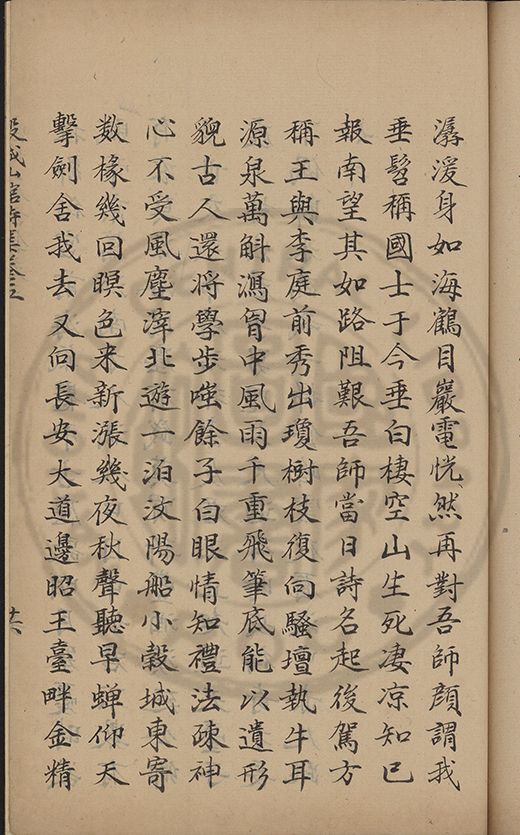 潺湲身如海鶴目巖電恍然再對吾師顏謂我
垂髫稱國士于今垂白棲空山生死凄凉知己
報南望其如路阻艱吾師當日詩名起後駕方
稱王與李庭前秀出瓊樹枝復向騷壇執牛耳
源泉萬斛瀉胷中風雨千重飛筆底能以遺形
貌古人還將學步嗤餘子白眼情知禮法疎神
心不受風塵滓北遊一泊汶陽船小穀城東寄
数椽幾回暝色来新漲幾夜秋聲聽早蝉仰天
擊劍舍我去又向長安大道邊昭王臺畔金精
穀城山館詩集卷五